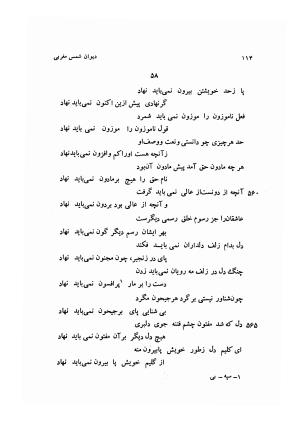 ۱۱۴ دیوان شمس مغربی
۵۸
پا زحد خویشتن بیرون نمی‌باید نهاد
گرنهادی پیش ازین اکنون نمی‌باید نهاد
فعل ناموزون را موزون نمی باید شمرد
قول ناموزون را موزون نمی‌باید نهاد
حد هرچیزی چو دانستی ونعت ووصف‌او
زآنچه هست اوراکم وافزون نمی‌بایدنهاد
هر چه مادون حق آمد پیش مادون آن‌بود
نام حق را هیچ برمادون نمی‌باید نهاد
۵۶۰ آنچه از دونست‌از عالی نمی‌باید گرفت
و آنچه از عالی بود بردون نمی‌باید نهاد
عاشقان‌را جز رسوم خلق رسمی دیگرست
بهر ایشان رسم دیگر گون نمی‌باید نهاد
دل بدام زلف دلداران نمی بایسد فکند
پای در زنجیر، چون مجنون نمی‌باید نهاد
چنگ دل در زلف مه رویان نمی‌باید زدن
دست را بر مار ۱پرافسون نمی‌باید نهاد
چون‌شناور نیستی برگرد هرجیحون مگرد
بی شنایی پای برجیحون نمی‌باید نهاد
۵۶۵ دل که شد مفتون چشم فتنه جوی دلبری
هیچ دل دیگر بر‌آن مفتون نمی‌باید نهاد
ای کلیم دل زطور خویش پابیرون منه
از گلیم خویش پا بیرون نمی‌باید نهاد
۱- سپه - بی